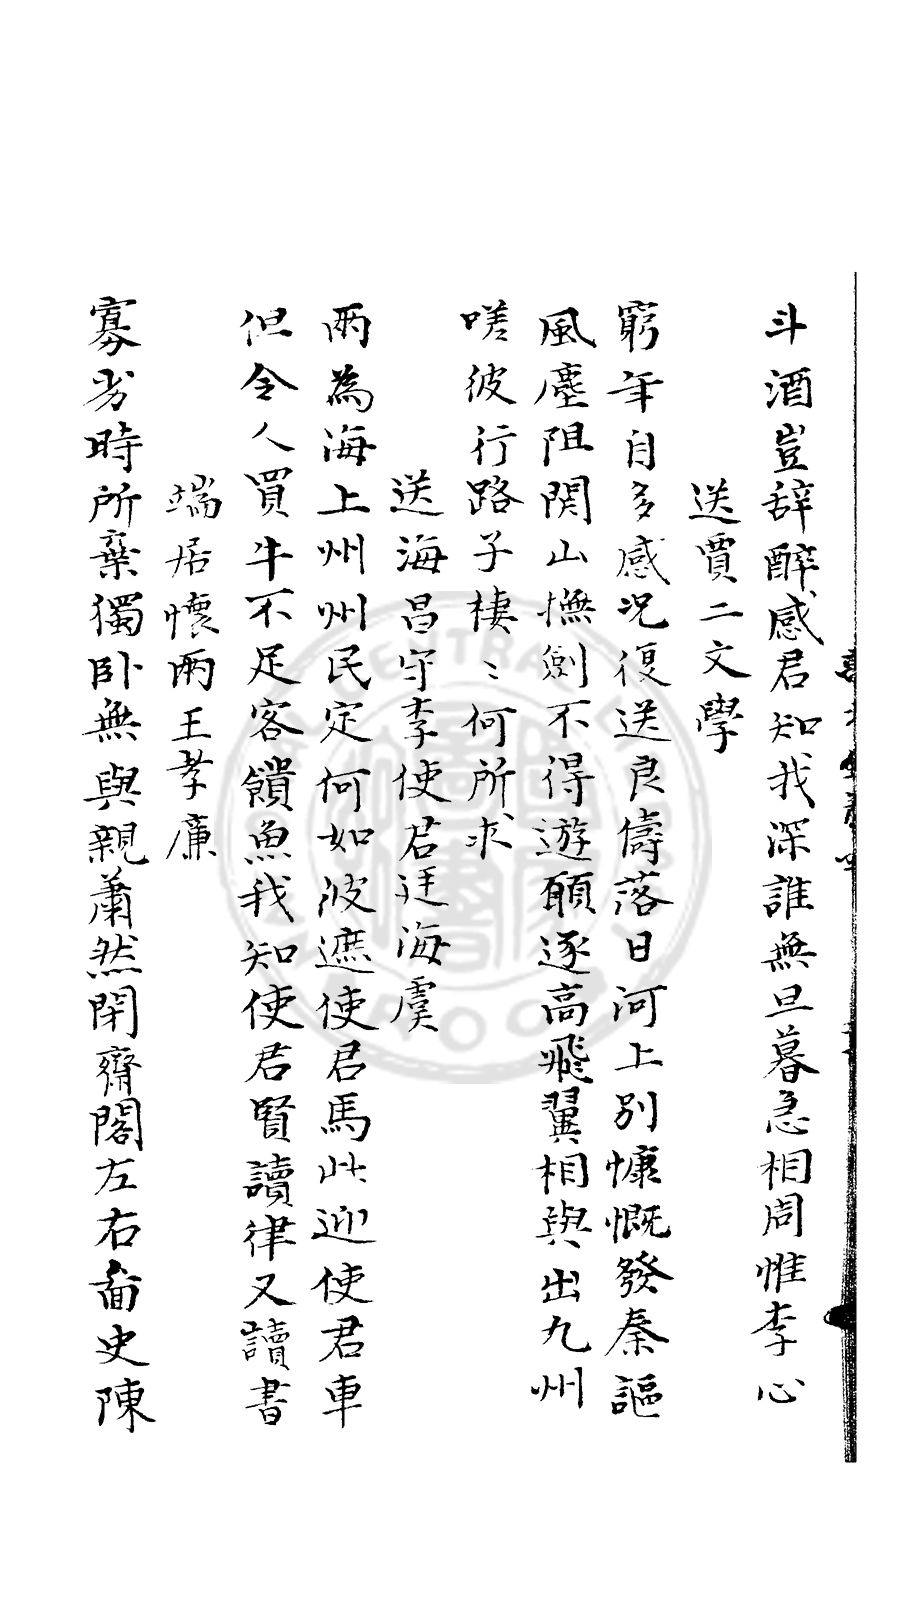 斗酒豈辞醉感君知我深誰無旦暮急相周惟李心
送賈二文學
窮年自多感况復送良儔落日河上別慷慨發秦謳
風塵阻関山撫劍不得遊願逐高飛翼相與出九州
嗟彼行路子棲〻何所求
送海昌守李使君迋海虞
兩為海上州州民定何如彼遮使君馬此迎使君車
但令人買牛不足客饋魚我知使君賢讀律又讀書
端居懷兩王孝廉
寡劣時所棄獨卧無與親蕭然閉齋閣左右啚史陳
CENTRAL